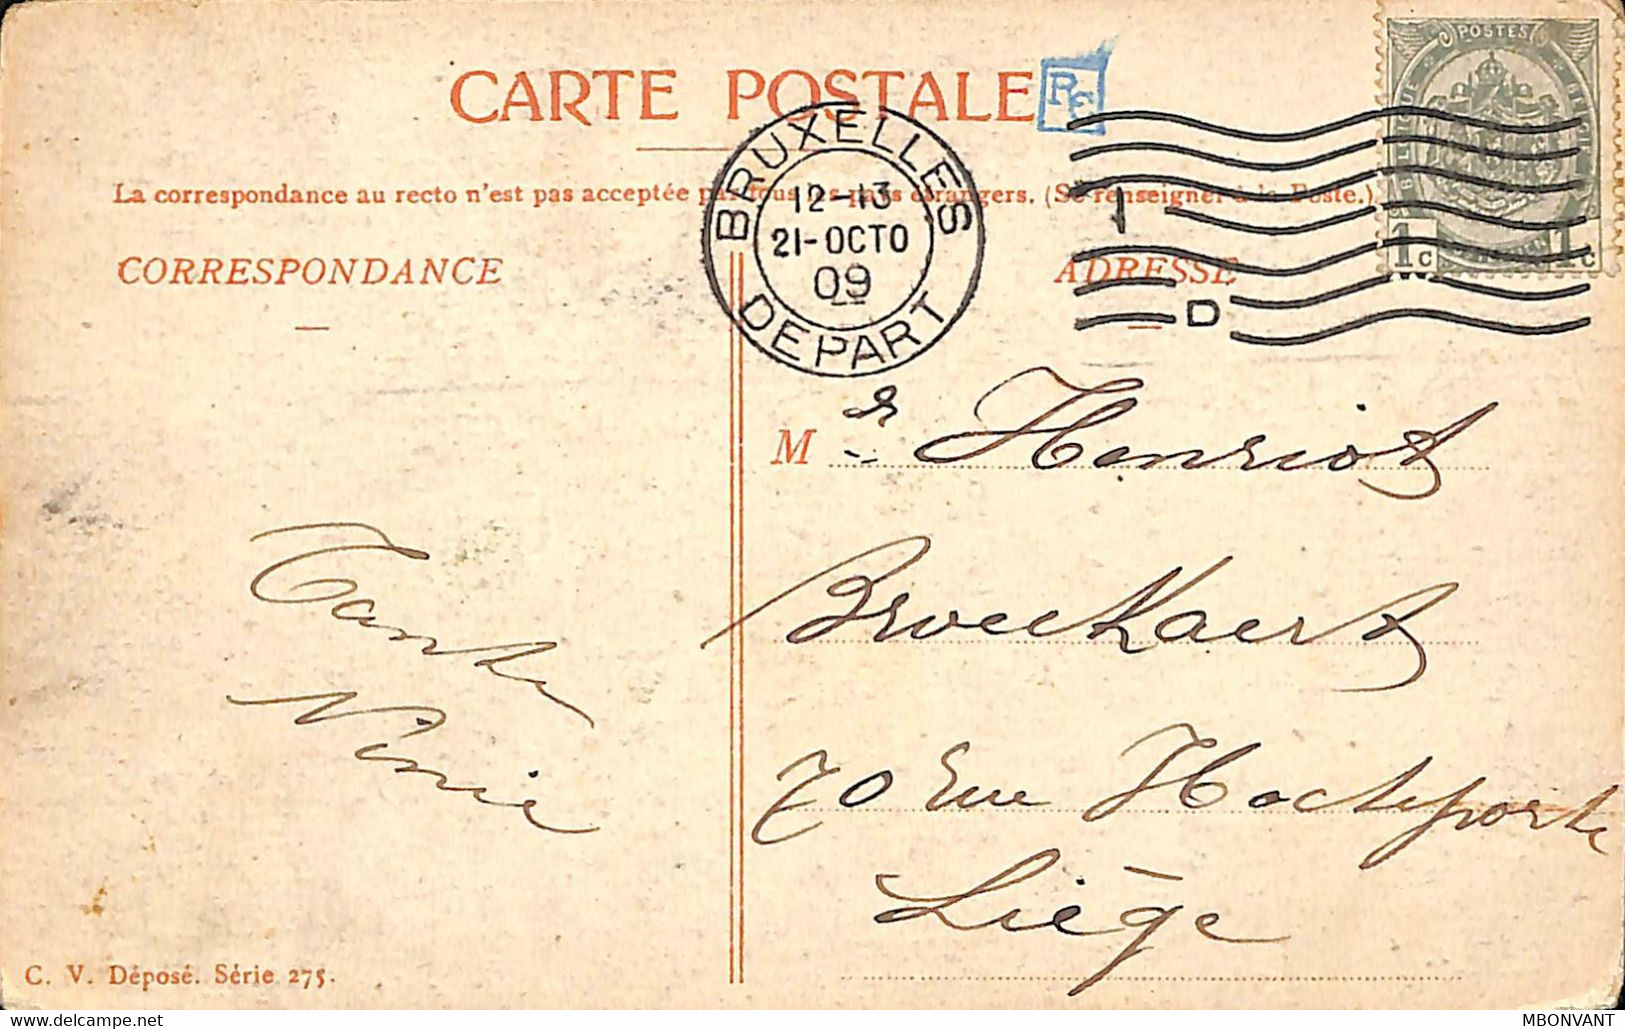 CARTE POSTALE
RC
POSTES
BELGIQUE
BELGIE
1c 1c
BRUXELLES
12-13
21-OCTO
09
DEPART
1
D
La correspondance au recto n'est pas acceptée par tous les pays étrangers. (Se renseigner à la Poste.)
CORRESPONDANCE
ADRESSE
Tante
Ninie
C. V. Déposé. Série 275.
Mr Henriot
Broeckaert
70 Rue Hocheporte
Liège
delcampe.net
MBONVANT